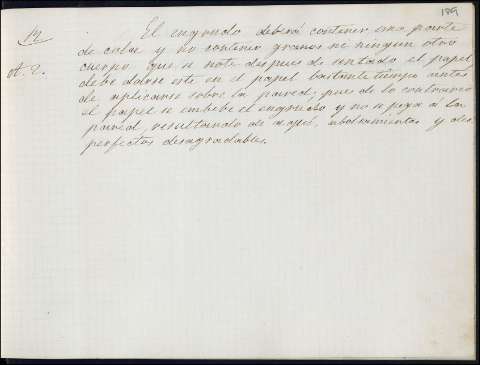 189
12
A. 2.
El engrudo deberá contener una parte
de cola y no contener granos ni ningun otro
cuerpo que se note despues de sentado el papel
debe darse este en el papel bastante tiempo antes
de aplicarse sobre la pared; pues de lo contrario
el papel se embebe el engrudo y no se pega á la
pared, resultando de aqui, abolsamientos y des
perfectos desagradables.